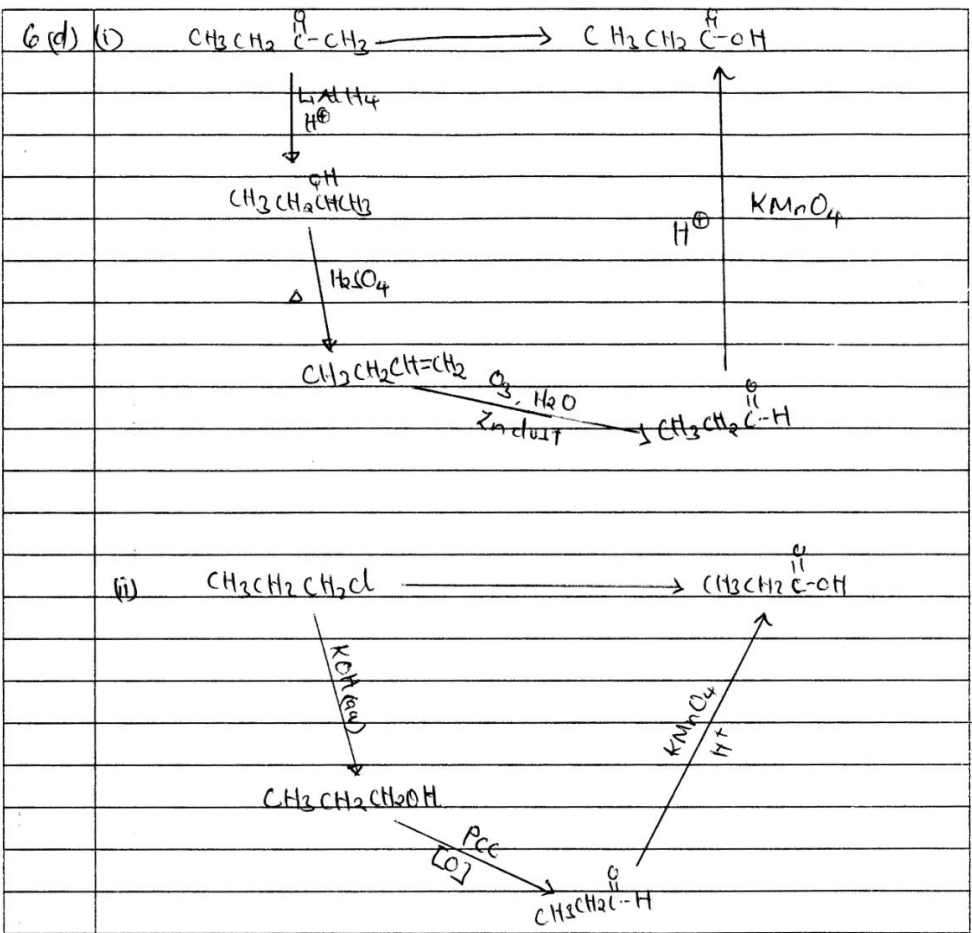 6(d) (i) CH3CH2 C-CH3 → CH3CH2 C-OH
O
LiAlH4
H⊕
OH
CH3CH2CHCH3
H⊕ KMnO4
△ H2SO4
CH3CH2CH=CH2
O3, H2O
Zn dust
O
CH3CH2C-H
O
(ii) CH3CH2CH2Cl → CH3CH2 C-OH
KOH(aq)
KMnO4
H+
CH3CH2CH2OH
PCC
[O]
O
CH3CH2C-H